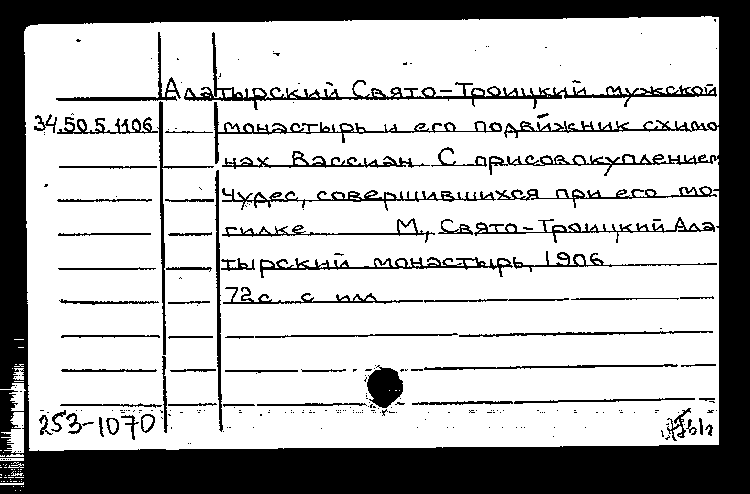 Алатырский Свято-Троицкий мужской
34.50.5.1106 монастырь и его подвижник схимо
нах Вассиан. С присовокуплением
чудес, совершившихся при его мо-
гилке. М., Свято-Троицкий Ала-
тырский монастырь, 1906.
72 с. с илл
253-1070